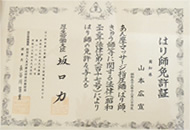 はり師免許証
山本広宣
あん摩マツサージ指圧師、はり師、
きゆう師等に関する法律(昭和
二十二年法律第二百十七号)により
はり師の免許を与える
厚生労働大臣 坂口力